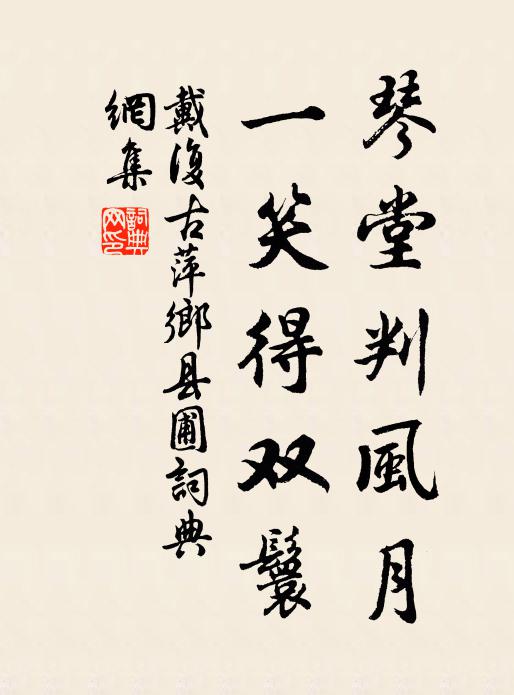 琴堂判風月
一笑得双鬟
戴復古萍鄉县圃詞典
網集
詞典
网印